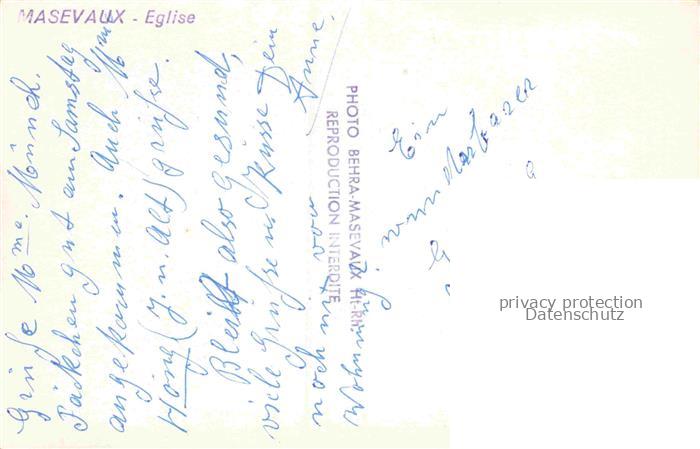 MASEVAUX - Eglise
Grüße Mme. Münch.
Päckchen gut am Samstag
angekommen. Auch Mme
Hönig (J. u. Alt) grüße.
Bleibt also gesund,
viele Grüße u. Küsse Dein
noch nit von Anne.
Wohnung
Ein
wunderbarer
PHOTO BEHRA-MASEVAUX Ht-Rhin
REPRODUCTION INTERDITE
privacy protection
Datenschutz